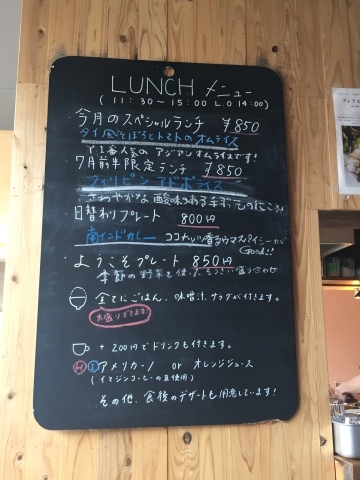 LUNCH メニュー
(11:30～15:00 L.O 14:00)
・今月のスペシャルランチ ¥850
タイ風そぼろとトマトのオムライス
で1番人気の アジアンオムライスです!
・7月前半限定ランチ ¥850
さわやかな酸味のある手羽元の
・日替わりプレート 800円
南インドカレー ココナッツ香るウマスパイシーが
Good!!
・ようこそプレート 850円
季節の野菜を使った 盛り合わせ
全てにごはん、味噌汁、サラダが付きます。
大盛りできます!
+200円でドリンクも付きます。
H I アメリカーノ or オレンジジュース
(イマジンコーヒーの豆使用)
その他、食後のデザートも用意しています!